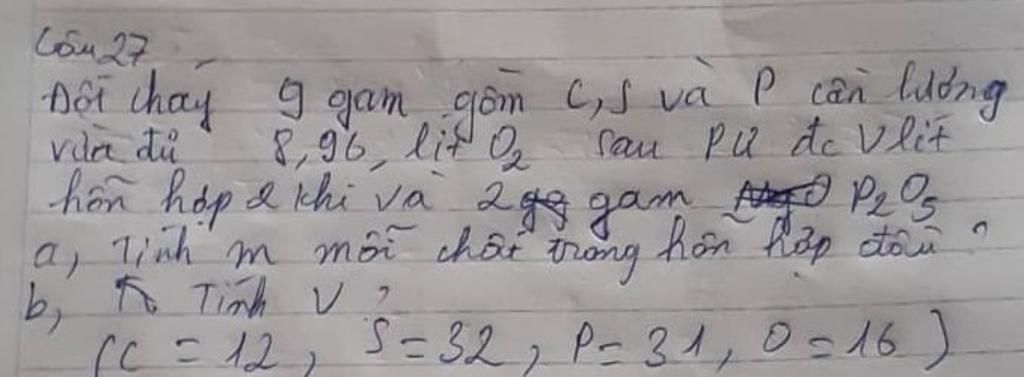 Câu 27
Đốt cháy 9 gam gồm C, S và P cần lượng
vừa đủ 8,96, lít O2 sau PƯ đc V lít
hỗn hợp 2 khí và 2 gam P2O5
a, Tính m mỗi chất trong hỗn hợp đầu ?
b, Tính V ?
(C = 12, S = 32, P = 31, O = 16)